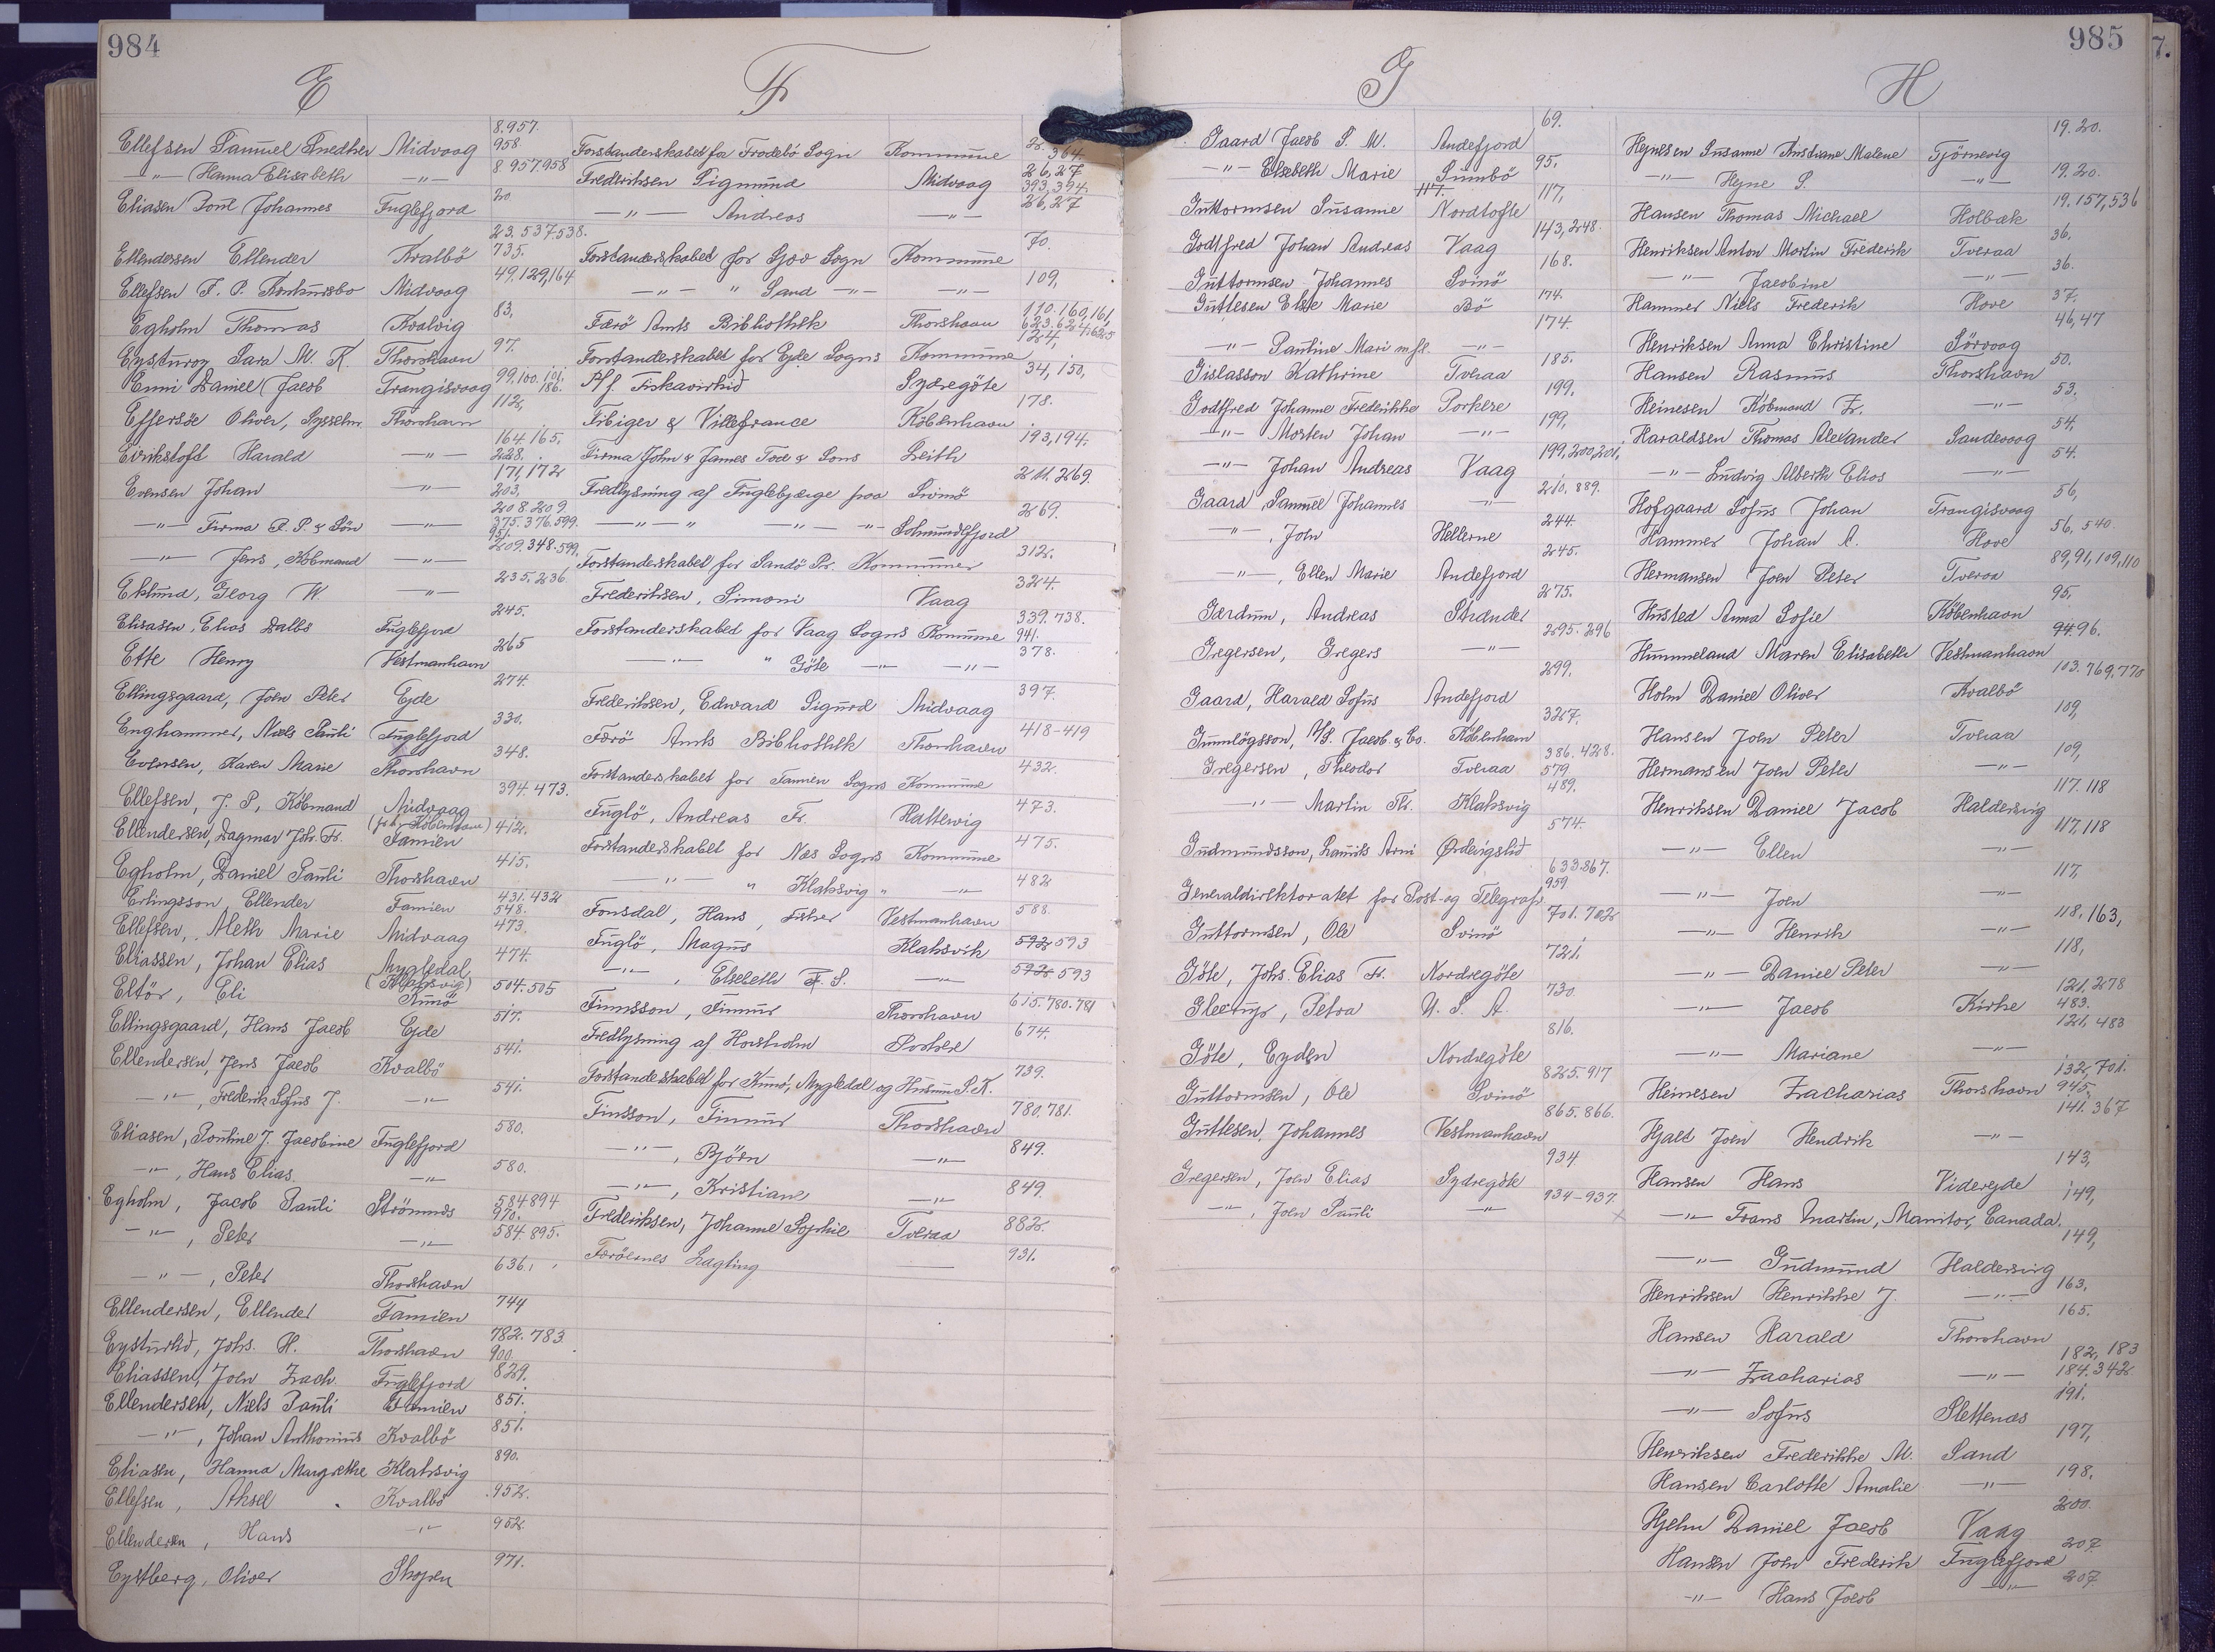 984
E
Ellefsen Samuel Snedker Midvaag 8.957. 958.
-"- Hanna Elisabeth -"- 8.957.958
Eliasen Poul Johannes Fuglefjord 20.
Ellendersen Ellender Kvalbö 23.537.538. 735.
Ellefsen F. P. Konkursbo Midvaag 49,129,164
Egholm Thomas Kvalvig 83,
Eysturoy Sara M. K. Thorshavn 97.
Enni Daniel Jacob Trangisvaag 99,100.101. 186.
Effersöe Oliver, Sysselm. Thorshavn 112,
Eirikstoft Harald -"- 164.165. 228.
Evensen Johan -"- 171,172 203,
-"- Firma P. P. & Sön -"- 208.209. 375.376.599. 951.
-"- Jens, Köbmand -"- 209.348.599.
Eklund, Georg W. -"- 235.236
Eliasen, Elias Dalbö Fuglefjord 245.
Ette Henry Vestmanhavn 265
Ellingsgaard, Joen Peter Ejde 274.
Enghammer, Niels Pauli Fuglefjord 330.
Evensen, Karen Marie Thorshavn 348.
Ellefsen, J. P., Köbmand Midvaag 394.473.
(f. h. Köbenhavn)
Ellendersen, Dagmar Joh. Fr. Famien 412.
Egholm, Daniel Pauli Thorshavn 415.
Erlingsson, Ellender Famien 431.432 548.
Ellefsen, Aleth Marie Midvaag 473.
Eliassen, Johan Elias Mygledal 474.
(Klaksvig)
Eltör, Eli Kunö 504.505
Ellingsgaard, Hans Jacob Ejde 517.
Ellendersen, Jens Jacob Kvalbö 541.
-"-, Frederik Sofus J. -"- 541.
Eliasen, Pouline J. Jacobine Fuglefjord 580.
-"-, Hans Elias -"- 580.
Egholm, Jacob Pauli Strömnæs 584.894 970.
-"-, Peter -"- 584.895.
-"-, Peter Thorshavn 636.
Ellendersen, Ellender Famien 744
Eysturlid, Johs. H. Thorshavn 782.783. 900.
Eliassen, Joen Zach. Fuglefjord 829.
Ellendersen, Niels Pauli Famien 851.
-"-, Johan Anthonius Kvalbö 851.
Eliasen, Hanna Margrethe Klaksvig 890.
Ellefsen, Aksel Kvalbö 952.
Ellendersen, Hans -"- 952.
Eystberg, Oliver Skopen 971.
F
Forstanderskabet for Frodebö Sogn Kommune 364.
Frederiksen Sigmund Midvaag 26,27 393,394.
-"- Andreas -"- 26,27
Forstanderskabet for Sjov Sogn Kommune 70.
-"- " Sand -"- -"- 109,
Færö Amts Bibliothek Thorshavn 110.160,161, 623.624.625
Forstanderskabet for Ejde Sogns Kommune 124,
P/f. Fiskavirkid Sydregöte 34,150,
Fibiger & Villefrance Köbenhavn 178.
Firma John & James Tod & Sons Leith 193,194.
Fredlysning af Fuglebjerge paa Svinö 211.269.
-"- " -"- -"- Solmundefjord 269.
Forstanderskabet for Sandö Pr. Kommuner 312.
Frederiksen, Simoni Vaag 324.
Forstanderskabet for Vaag Sogns Kommune 339.738. 941.
-"- " Göte -"- -"- 378.
Frederiksen, Edward Sigurd Midvaag 397.
Færö Amts Bibliothek Thorshavn 418-419
Forstanderskabet for Famien Sogns Kommune 432.
Fuglö, Andreas Fr. Hattevig 473.
Forstanderskabet for Næs Sogns Kommune 475.
-"- " Klaksvig " -"- 482
Fonsdal, Hans, Fisker Vestmanhavn 588.
Fuglö, Magnus Klaksvik 592 593
-"-, Elsebeth F. S. -"- 592 593
Finnsson, Finnur Thorshavn 615.780.781
Fredlysning af Horsholm Porkere 674.
Forstanderskabet for Kunö, Mygledal og Husum S. K. 739.
Finsson, Finnur Thorshavn 780.781.
-"-, Björn -"- 849.
-"-, Kristiane -"- 849.
Frederiksen, Johanne Sophie Tveraa 882.
Færöernes Lagting 931.
985
G
Gaard Jacob S. M. Andefjord 69.
-"- Elsebeth Marie Sumbö 95.
Guttormsen Susanne Nordtofte 117,
Godtfred Johan Andreas Vaag 143,248.
Guttormsen Johannes Svinö 168.
Guttesen Else Marie Bö 174.
-"- Pauline Mari m.fl. -"- 174.
Gislasson Kathrine Tveraa 185.
Godtfred Johanne Frederikke Porkere 199.
-"- Morten Johan -"- 199,
-"- Johan Andreas Vaag 199,200,201,
Gaard, Samuel Johannes -"- 210.889.
-"-, Joen Hellerne 244.
-"-, Ellen Marie Andefjord 245.
Gærdum, Andreas Strænder 275.
Gregersen, Gregers -"- 295.296
Gaard, Harald Sofus Andefjord 299.
Gunnlögsson, A/S. Jacob & Co. Köbenhavn 327.
Gregersen, Theodor Tveraa 386.428. 579.
-"- Martin Fr. Klaksvig 489.
Gudmundsson, Laurits Arni Ördevigslid 574.
Generaldirektoratet for Post- og Telegraf 633.867. 959
Guttormsen, Ole Svinö 701.702
Göte, Johs. Elias Fr. Nordregöte 721.
Gleerup, Petra U. S. A. 730.
Göte, Eyden Nordregöte 816.
Guttormsen, Ole Svinö 825.917
Guttesen, Johannes Vestmanhavn 865.866.
Gregersen, Joen Elias Sydregöte 934
-"-, Joen Pauli -"- 934-937.
H
Hejnesen Susanne Kristiane Malene Tjörnevig 19.20.
-"- Hejne S. -"- 19.20.
Hansen Thomas Michael Holbæk 19.157,536
Henriksen Anton Martin Frederik Tveraa 36,
-"- Jacobine -"- 36.
Hammer Niels Frederik Hove 37.
Henriksen Anna Christine Sörvaag 46,47
Hansen Rasmus Thorshavn 50.
Heinesen Köbmand Z. -"- 53.
Haraldsen Thomas Alexander Sandevaag 54.
-"- Ludvig Alberth Elias -"- 54.
Hofgaard Sofus Johan Trangisvaag 56,
Hammer Johan A. Hove 56,540.
Hermansen Joen Peter Tveraa 89,91,109,110
Husted Anna Sofie Köbenhavn 95.
Hummeland Maren Elisabeth Vestmanhavn 94.96.
Holm Daniel Oliver Kvalbö 103.769.770
Hansen Joen Peter Tveraa 109,
Hermansen Joen Peter -"- 109,
Henriksen Daniel Jacob Haldersvig 117.118
-"- Ellen -"- 117,118
-"- Joen -"- 117,
-"- Henrik -"- 118.163,
-"- Daniel Peter -"- 118,
-"- Jacob Kirke 121.278 483.
-"- Mariane -"- 121.483
Heinesen Zacharias Thorshavn 132,701. 945.
Hjalt Joen Hendrik -"- 141.367
Hansen Hans Videreyde 143,
-"- Frans Martin, Manitor, Canada. 149,
-"- Gudmund Haldersvig 149,
Henriksen Henrikke J. -"- 163,
Hansen Harald Thorshavn 165.
-"- Zacharias -"- 182,183 184.342
-"- Sofus Slettenæs 191.
Henriksen Frederikke M. Sand 197,
Hansen Carlotte Amalie -"- 198.
Hjelm Daniel Jacob Vaag 200.
Hansen Joen Frederik Fuglefjord 207.
-"- Hans Jacob -"- 207